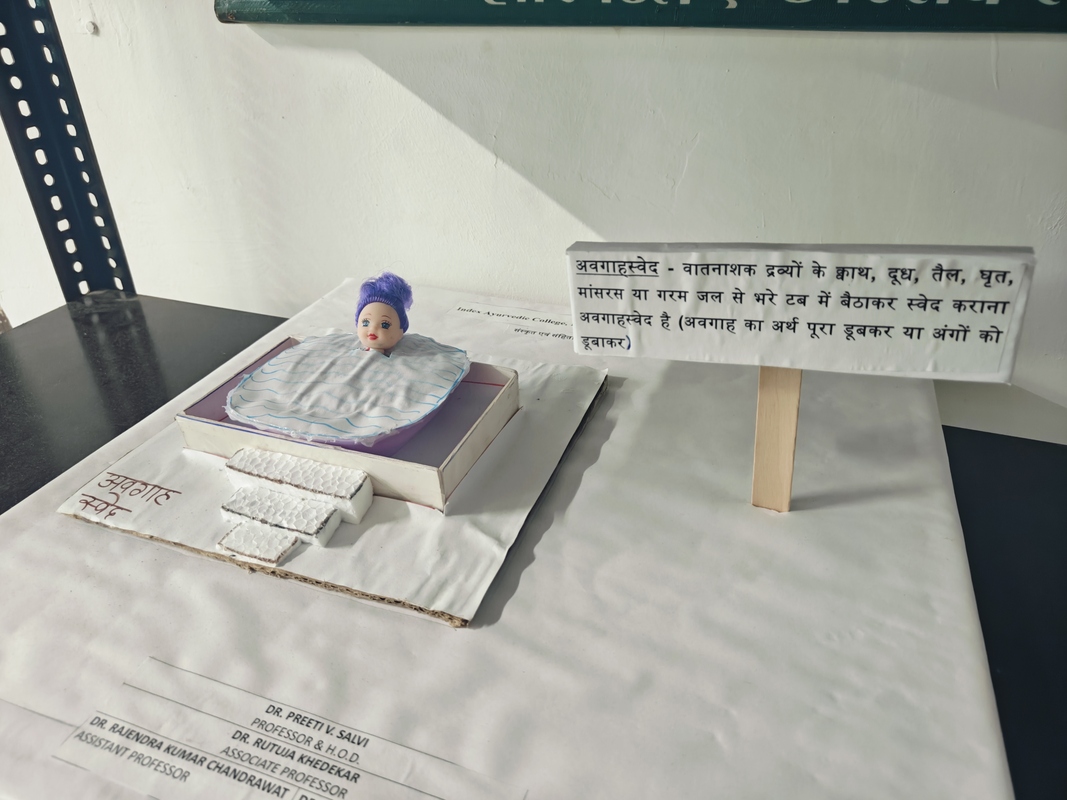 Index Ayurvedic College,
अवगाहस्वेद - वातनाशक द्रव्यों के क्वाथ, दूध, तैल, घृत,
मांसरस या गरम जल से भरे टब में बैठाकर स्वेद कराना
अवगाहस्वेद है (अवगाह का अर्थ पूरा डूबकर या अंगों को
डूबाकर)
अवगाह
स्वेद
DR. PREETI V. SALVI
PROFESSOR & H.O.D.
DR. RUTUJA KHEDEKAR
ASSOCIATE PROFESSOR
DR. RAJENDRA KUMAR CHANDRAWAT
ASSISTANT PROFESSOR